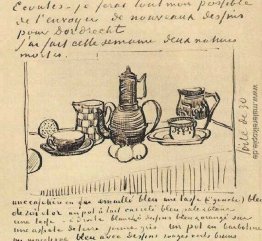 Ecoutes - je ferai tout mon possible
de t'envoyer de nouveaux dessins
pour Dordrecht
J'ai fait cette semaine deux natures
mortes.
toile de 30
www.malereikopie.de
une cafetière en fer émaillé bleu une tasse (à gauche) bleu
de roi et or un pot à lait carrelé bleu clair et blanc
une tasse à droite blanche dessins bleu orangé sur
une assiette de terre jaune gris un pot en barbotine
ou majolique bleu avec dessins rouges verts bruns